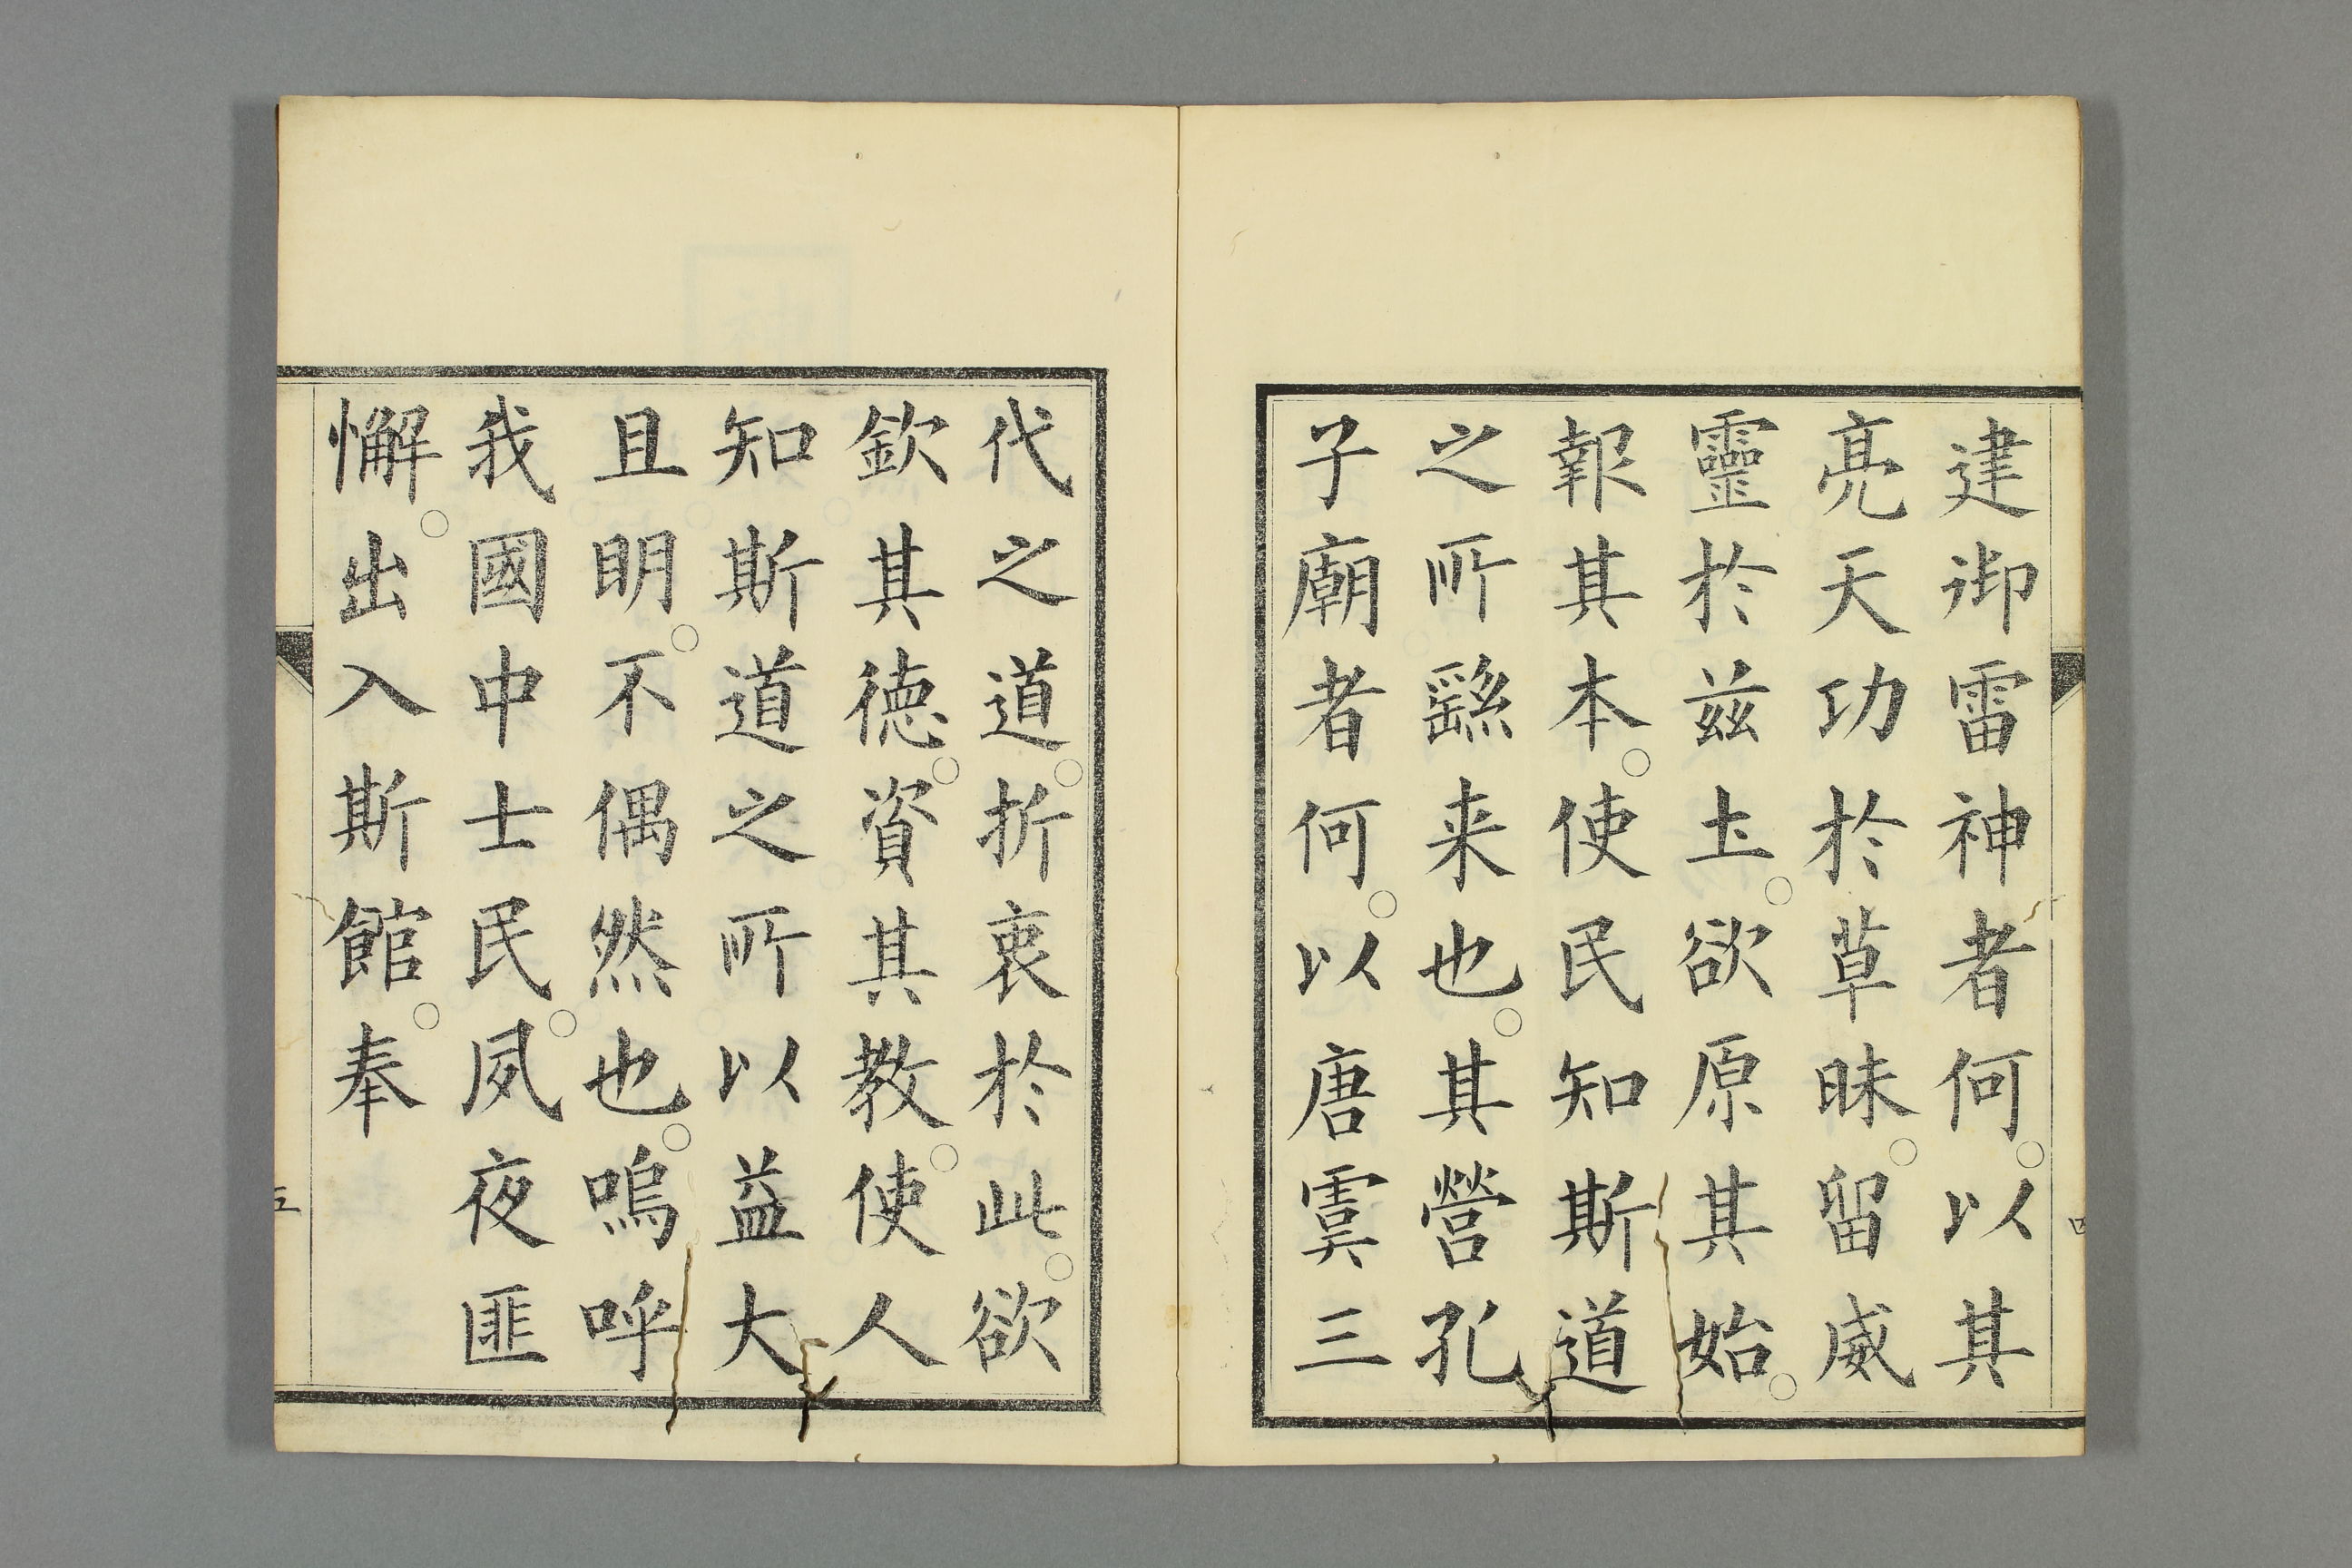 建御雷神者何○以其
亮天功於草昧○留威
靈於兹土○欲原其始○
報其本○使民知斯道
之所繇来也○其營孔
子廟者何○以唐虞三
代之道○折衷於此○欲
欽其徳○資其教○使人
知斯道之所以益大
且明○不偶然也○嗚呼
我國中士民○夙夜匪
懈○出入斯館○奉